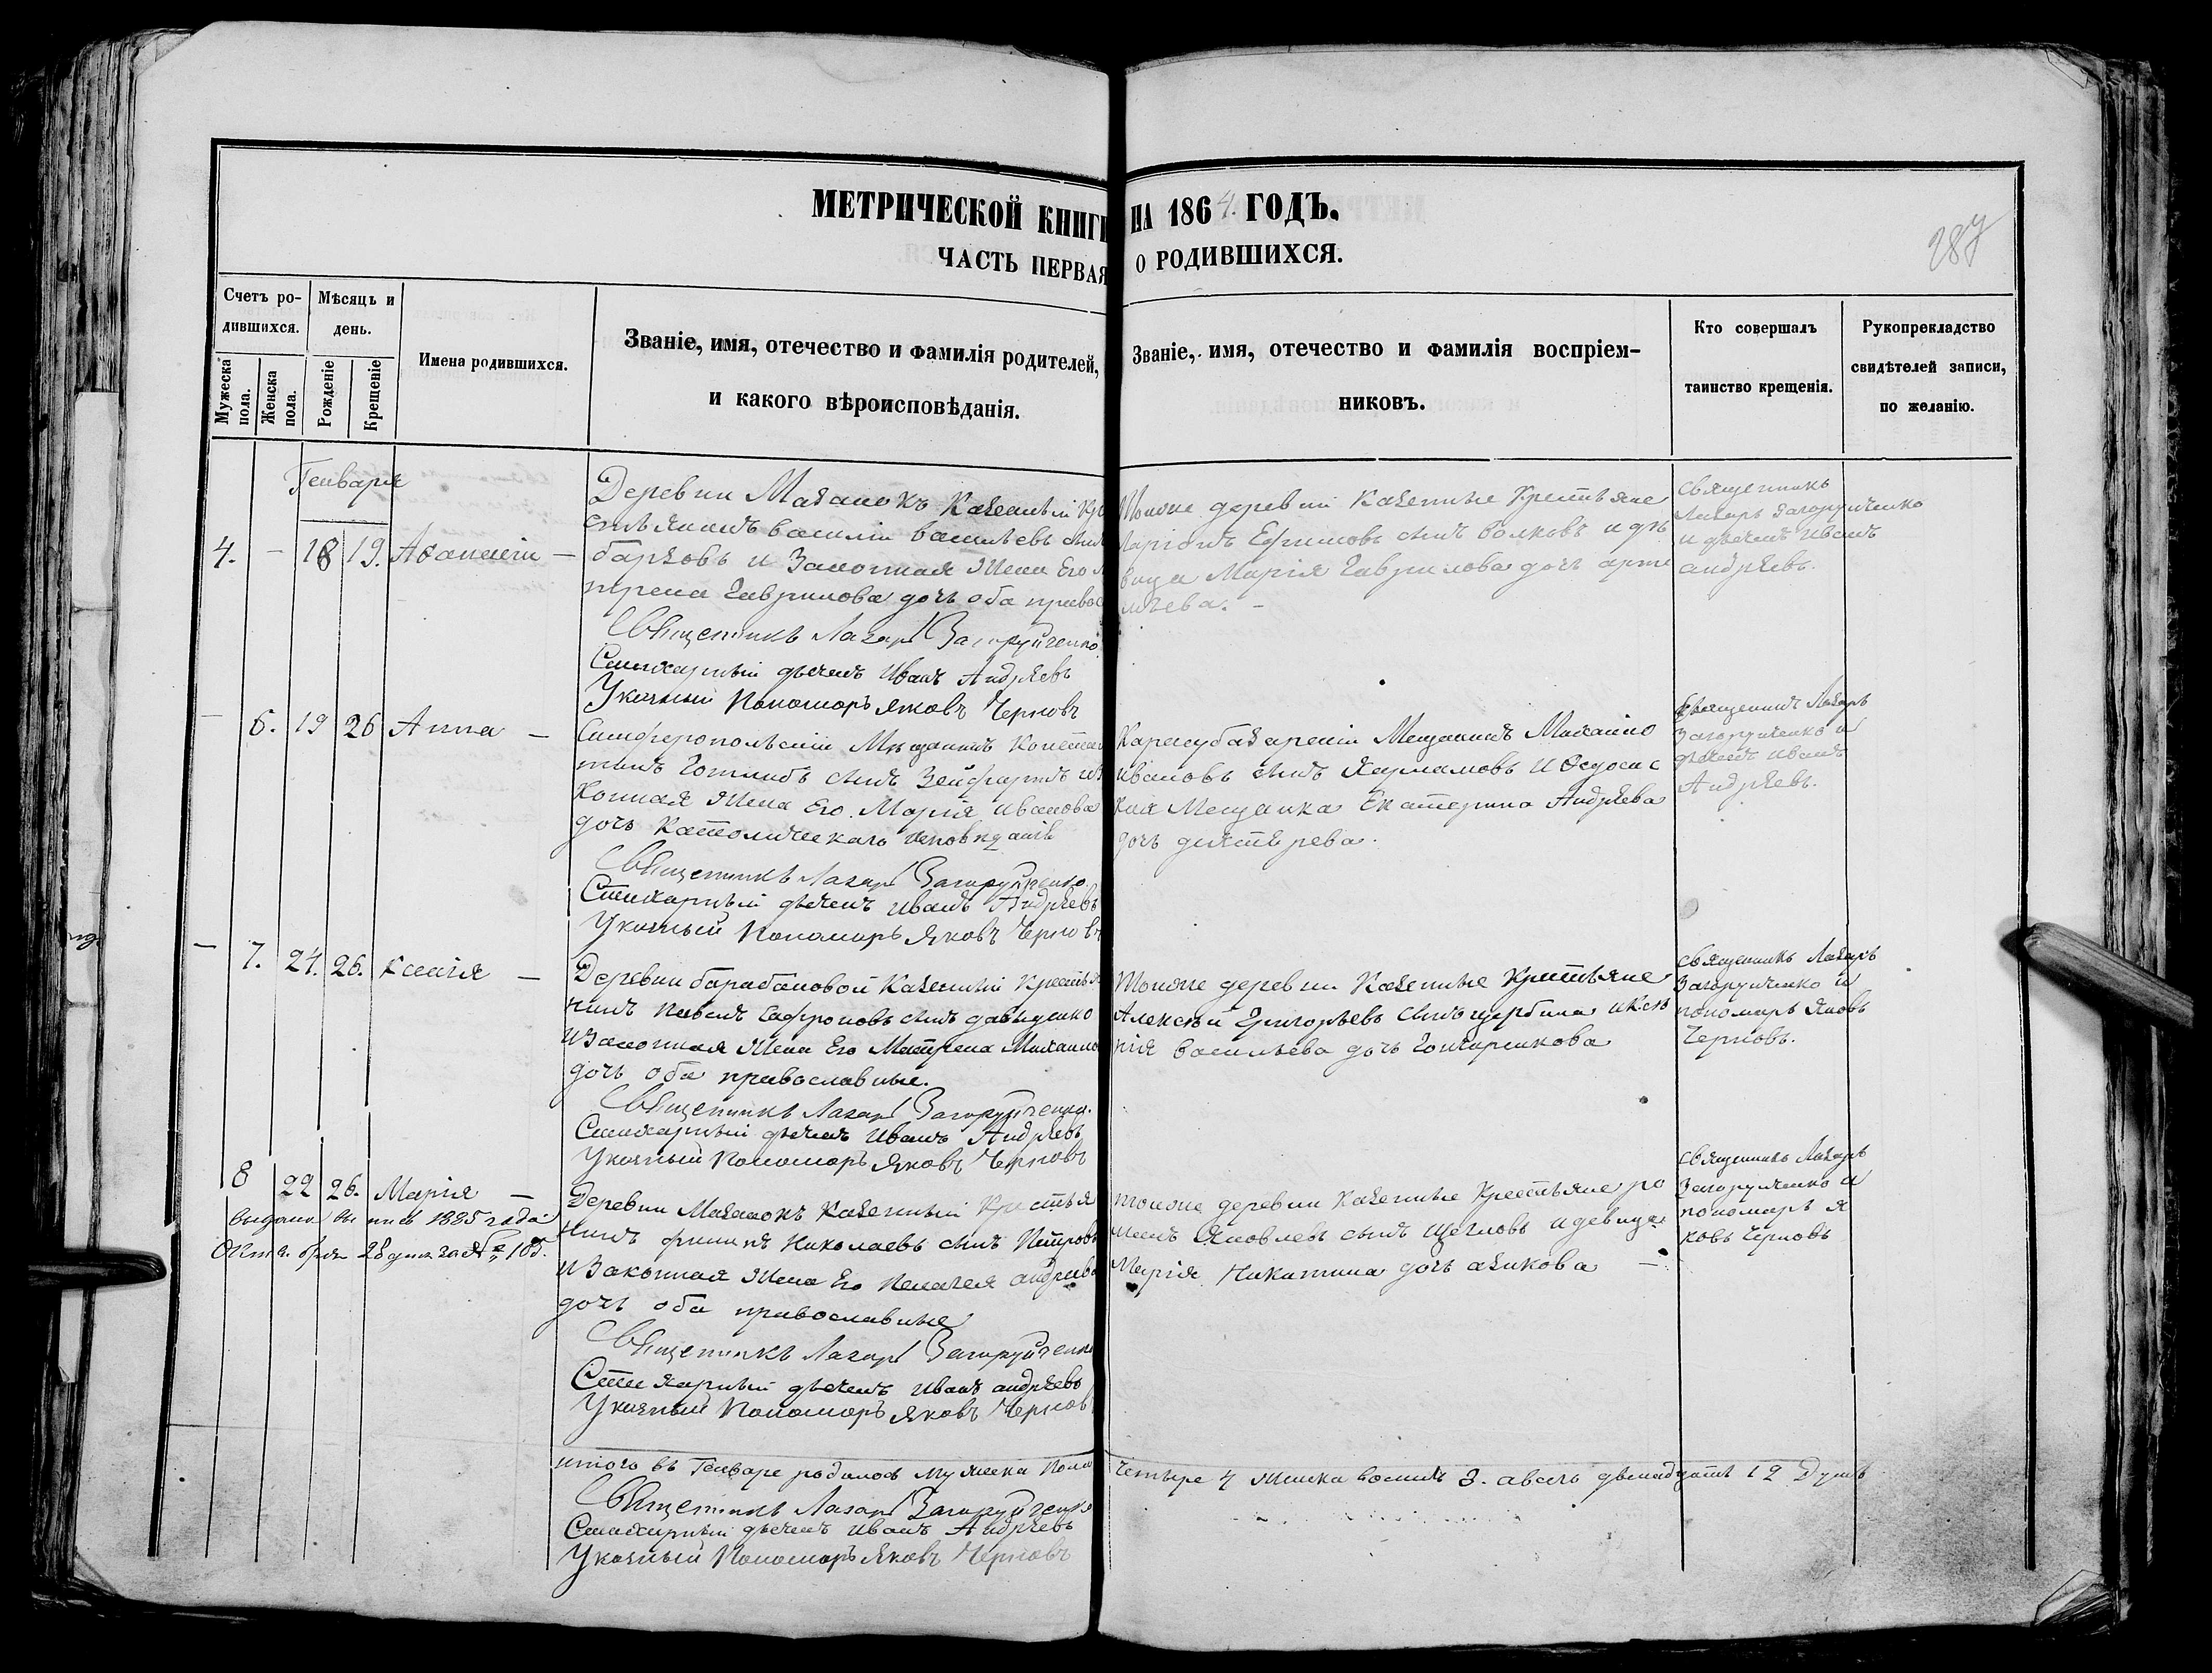 МЕТРИЧЕСКОЙ КНИГИ НА 1864. ГОДЪ.
ЧАСТЬ ПЕРВАЯ О РОДИВШИХСЯ.
287
Счетъ ро-
дившихся.
Мужеска пола.
Женска пола.
Мѣсяцъ и
день.
Рожденіе
Крещеніе
Имена родившихся.
Званіе, имя, отечество и фамилія родителей,
и какого вѣроисповѣданія.
Званіе, имя, отечество и фамилія воспріем-
никовъ.
Кто совершалъ
таинство крещенія.
Рукоприкладство
свидѣтелей записи,
по желанію.
Генваря
4. — 18 19. Аѳанасій —
Деревни Мазанокъ Казенный Кре
стьянинъ василій васильевъ сынъ
барковъ и Законная Жена Его М
трена Гаврилова дочь оба правос
Священникъ Лазарь Загоруйченко
Стихарный дьячекъ Иванъ Андреевъ
Указный Пономарь Яковъ Черновъ
Тоиже деревни Казенные Крестьяне
Ларіонъ Ефимовъ сынъ волковъ и дѣ
вица Марія Гаврилова дочь арте
мьева. —
Священникъ
Лазарь Загоруйченко
и дьячекъ Иванъ
андреевъ.
— 6. 19 26 Анна —
Симферопольскій Мѣщанинъ Констан
тинъ Готлибъ сынъ Зейфартъ и За
конная Жена Его Марія Иванова
дочь Католическаго исповѣданія
Священникъ Лазарь Загоруйченко
Стихарный дьячекъ Иванъ Андреевъ
Указный Пономарь Яковъ Черновъ
Карасубазарскій Мещанинъ Михаило
Ивановъ сынъ Харламовъ и Ѳеодосіс
кая Мещанка Екатерина Андреева
дочь дехтерева.
Священникъ Лазарь
Загоруйченко и
дьячекъ Иванъ
Андреевъ.
— 7. 24. 26. Ксенія —
Деревни барабановой Казенный Крестья
нинъ Павелъ Сафроновъ сынъ давиденко
и Законная Жена Его Матрена Михайло
дочь оба православные.
Священникъ Лазарь Загоруйченко.
Стихарный дьячекъ Иванъ Андреевъ
Указный Пономарь Яковъ Черновъ
Тоиже деревни Казенные Крестьяне
Алексѣй Григорьевъ сынъ щербина и Ксе
нія васильева дочь Гончарикова
Священникъ Лазарь
Загоруйченко и
пономарь Яковъ
Черновъ.
8 22 26. Марія —
Выдана вы пись 1885 года
28 дня за № 185.
Деревни Мазанокъ Казенный Крестья
нинъ филипъ Николаевъ сынъ Петровъ
и Законная Жена Его Пелагея андреева
дочь оба православные
Священникъ Лазарь Загоруйченко
Стихарный дьячекъ Иванъ андреевъ
Указный Пономарь Яковъ Черновъ
тоиже деревни Казенные Крестьяне ро
манъ Яковлевъ сынъ Щегловъ и девица
Марія Никитина дочь азикова —
Священникъ Лазарь
Загоруйченко и
пономарь Я
ковъ Черновъ
итого въ Генваре родилось мужеска пола четыре 4 женска восемь 8. а всего двенадцать 12 Душъ
Священникъ Лазарь Загоруйченко
Стихарный дьячекъ Иванъ Андреевъ
Указный Пономарь Яковъ Черновъ